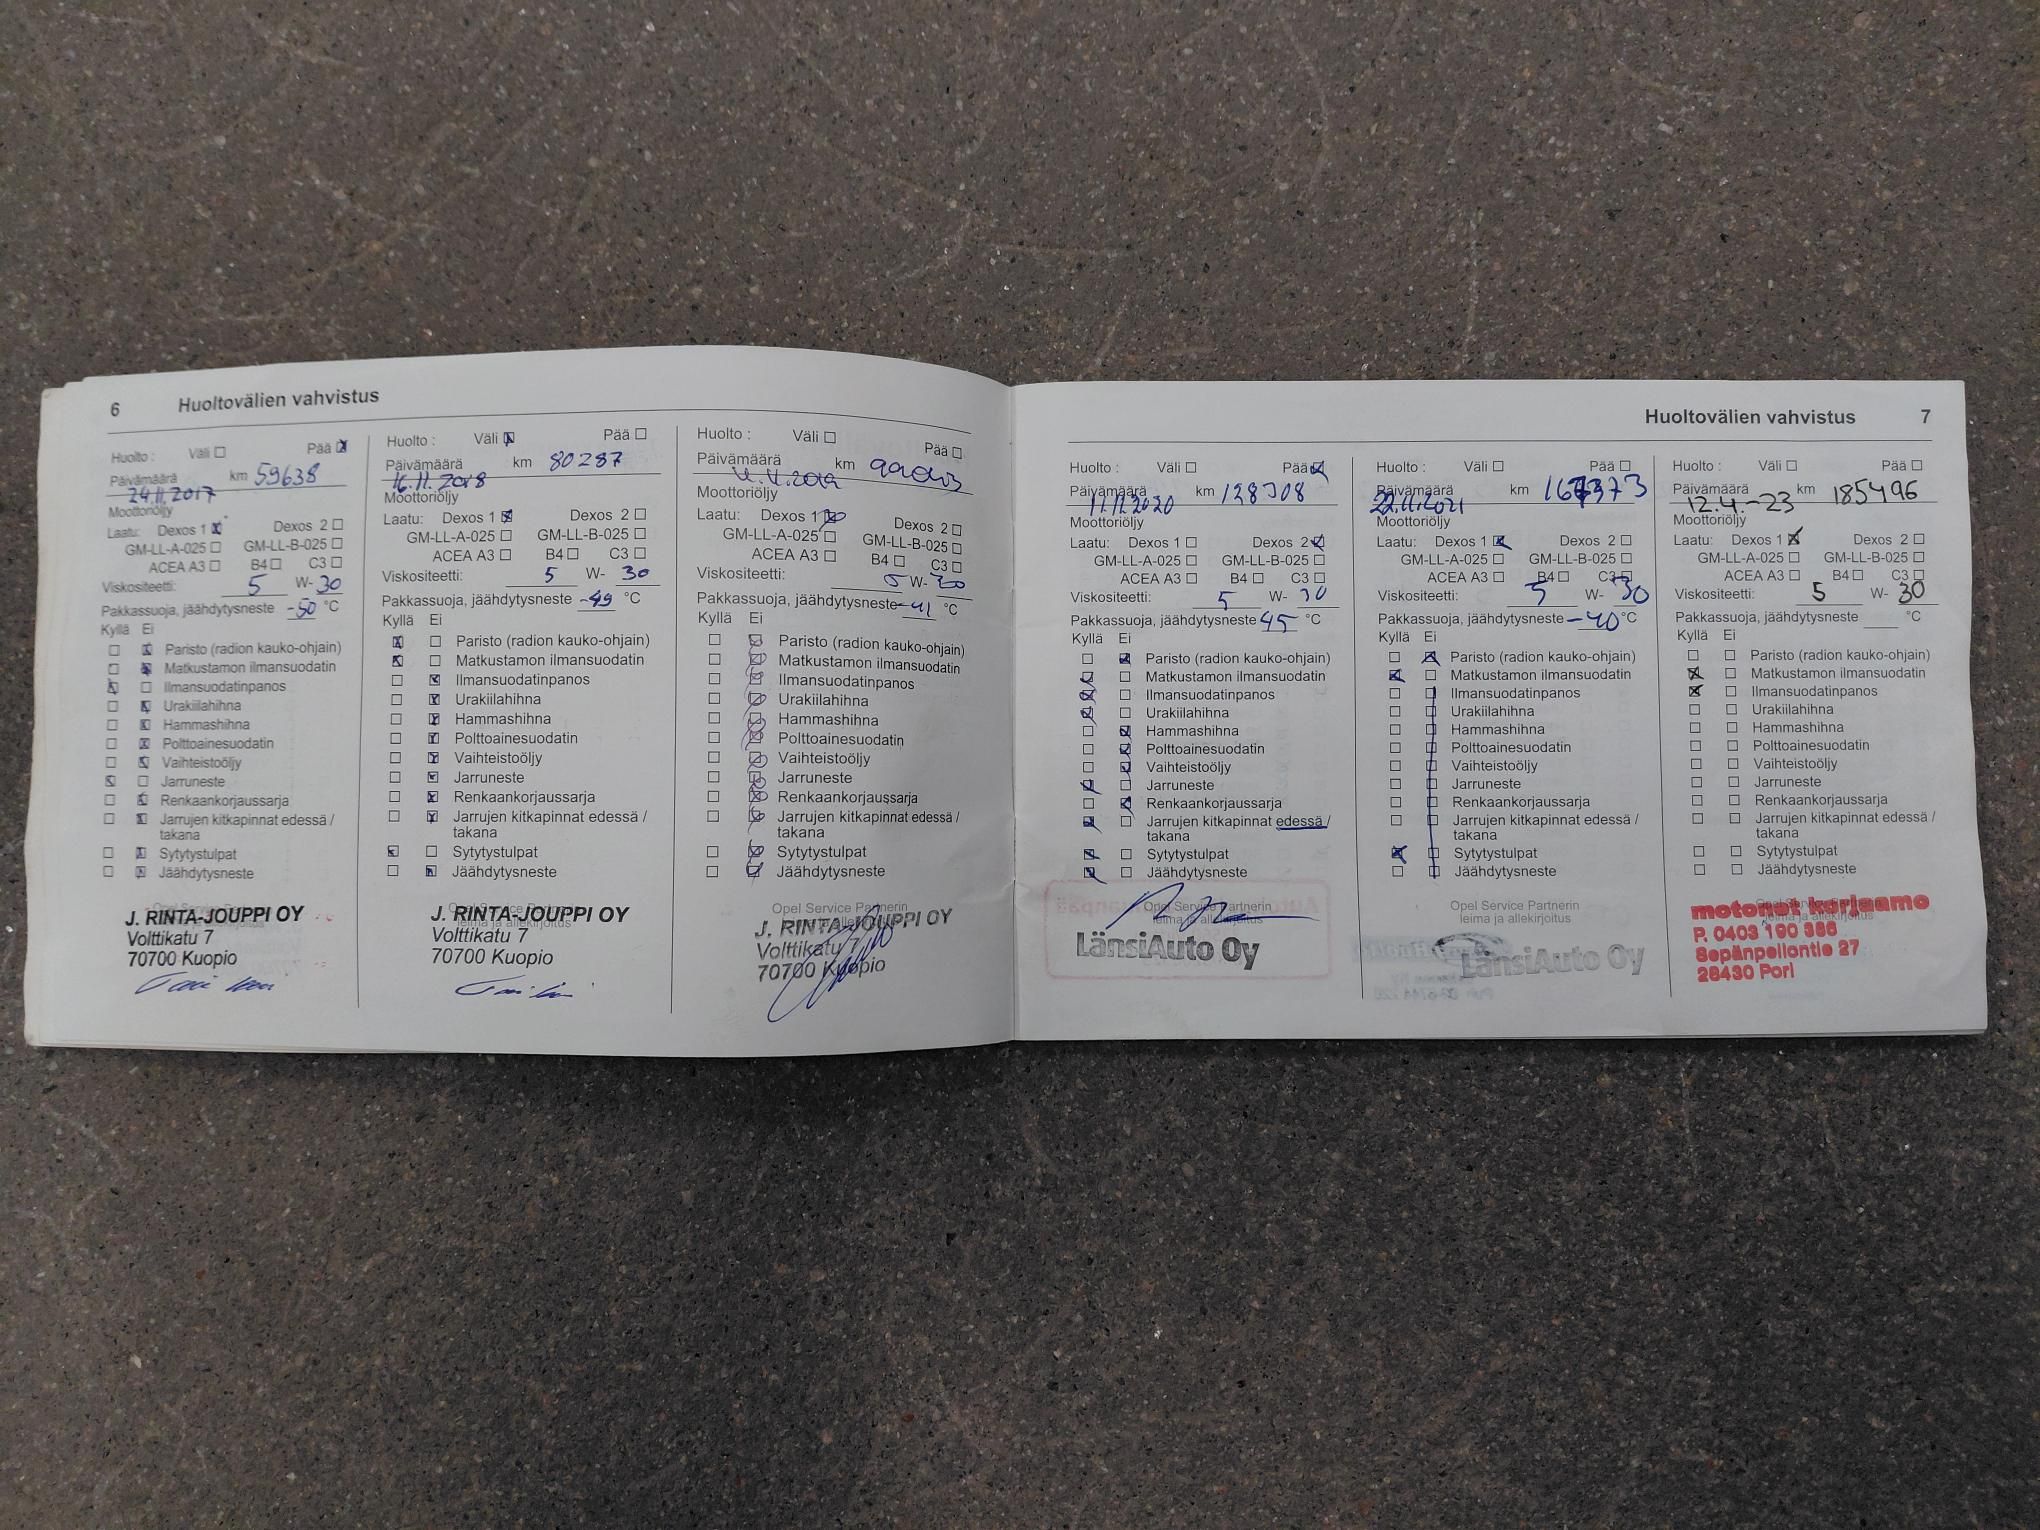 6 Huoltovälien vahvistus
Huolto : Väli Pää
Päivämäärä km 59638
24.11.2017
Moottoriöljy
Laatu: Dexos 1 Dexos 2
GM-LL-A-025 GM-LL-B-025
ACEA A3 B4 C3
Viskositeetti: 5 W- 30
Pakkassuoja, jäähdytysneste -50 °C
Kyllä Ei
Paristo (radion kauko-ohjain)
Matkustamon ilmansuodatin
Ilmansuodatinpanos
Urakiilahihna
Hammashihna
Polttoainesuodatin
Vaihteistoöljy
Jarruneste
Renkaankorjaussarja
Jarrujen kitkapinnat edessä /
takana
Sytytystulpat
Jäähdytysneste
J. RINTA-JOUPPI OY
Volttikatu 7
70700 Kuopio
Huolto : Väli Pää
Päivämäärä km 80287
16.11.2018
Moottoriöljy
Laatu: Dexos 1 Dexos 2
GM-LL-A-025 GM-LL-B-025
ACEA A3 B4 C3
Viskositeetti: 5 W- 30
Pakkassuoja, jäähdytysneste -49 °C
Kyllä Ei
Paristo (radion kauko-ohjain)
Matkustamon ilmansuodatin
Ilmansuodatinpanos
Urakiilahihna
Hammashihna
Polttoainesuodatin
Vaihteistoöljy
Jarruneste
Renkaankorjaussarja
Jarrujen kitkapinnat edessä /
takana
Sytytystulpat
Jäähdytysneste
Opel Service Partnerin
leima ja allekirjoitus
J. RINTA-JOUPPI OY
Volttikatu 7
70700 Kuopio
Huolto : Väli Pää
Päivämäärä km
Moottoriöljy
Laatu: Dexos 1 Dexos 2
GM-LL-A-025 GM-LL-B-025
ACEA A3 B4 C3
Viskositeetti: 5 W- 30
Pakkassuoja, jäähdytysneste -41 °C
Kyllä Ei
Paristo (radion kauko-ohjain)
Matkustamon ilmansuodatin
Ilmansuodatinpanos
Urakiilahihna
Hammashihna
Polttoainesuodatin
Vaihteistoöljy
Jarruneste
Renkaankorjaussarja
Jarrujen kitkapinnat edessä /
takana
Sytytystulpat
Jäähdytysneste
Opel Service Partnerin
leima ja allekirjoitus
J. RINTA-JOUPPI OY
Volttikatu 7
70700 Kuopio
Huoltovälien vahvistus 7
Huolto : Väli Pää
Päivämäärä km 128308
11.11.2020
Moottoriöljy
Laatu: Dexos 1 Dexos 2
GM-LL-A-025 GM-LL-B-025
ACEA A3 B4 C3
Viskositeetti: 5 W- 30
Pakkassuoja, jäähdytysneste 45 °C
Kyllä Ei
Paristo (radion kauko-ohjain)
Matkustamon ilmansuodatin
Ilmansuodatinpanos
Urakiilahihna
Hammashihna
Polttoainesuodatin
Vaihteistoöljy
Jarruneste
Renkaankorjaussarja
Jarrujen kitkapinnat edessä /
takana
Sytytystulpat
Jäähdytysneste
Opel Service Partnerin
leima ja allekirjoitus
LänsiAuto Oy
Huolto : Väli Pää
Päivämäärä km
22.11.2021
Moottoriöljy
Laatu: Dexos 1 Dexos 2
GM-LL-A-025 GM-LL-B-025
ACEA A3 B4 C3
Viskositeetti: 5 W- 30
Pakkassuoja, jäähdytysneste -40 °C
Kyllä Ei
Paristo (radion kauko-ohjain)
Matkustamon ilmansuodatin
Ilmansuodatinpanos
Urakiilahihna
Hammashihna
Polttoainesuodatin
Vaihteistoöljy
Jarruneste
Renkaankorjaussarja
Jarrujen kitkapinnat edessä /
takana
Sytytystulpat
Jäähdytysneste
Opel Service Partnerin
leima ja allekirjoitus
LänsiAuto Oy
Huolto : Väli Pää
Päivämäärä km 185496
12.4.-23
Moottoriöljy
Laatu: Dexos 1 Dexos 2
GM-LL-A-025 GM-LL-B-025
ACEA A3 B4 C3
Viskositeetti: 5 W- 30
Pakkassuoja, jäähdytysneste °C
Kyllä Ei
Paristo (radion kauko-ohjain)
Matkustamon ilmansuodatin
Ilmansuodatinpanos
Urakiilahihna
Hammashihna
Polttoainesuodatin
Vaihteistoöljy
Jarruneste
Renkaankorjaussarja
Jarrujen kitkapinnat edessä /
takana
Sytytystulpat
Jäähdytysneste
motonet korjaamo
P. 0403 190 386
Sepänpellontie 27
28430 Pori